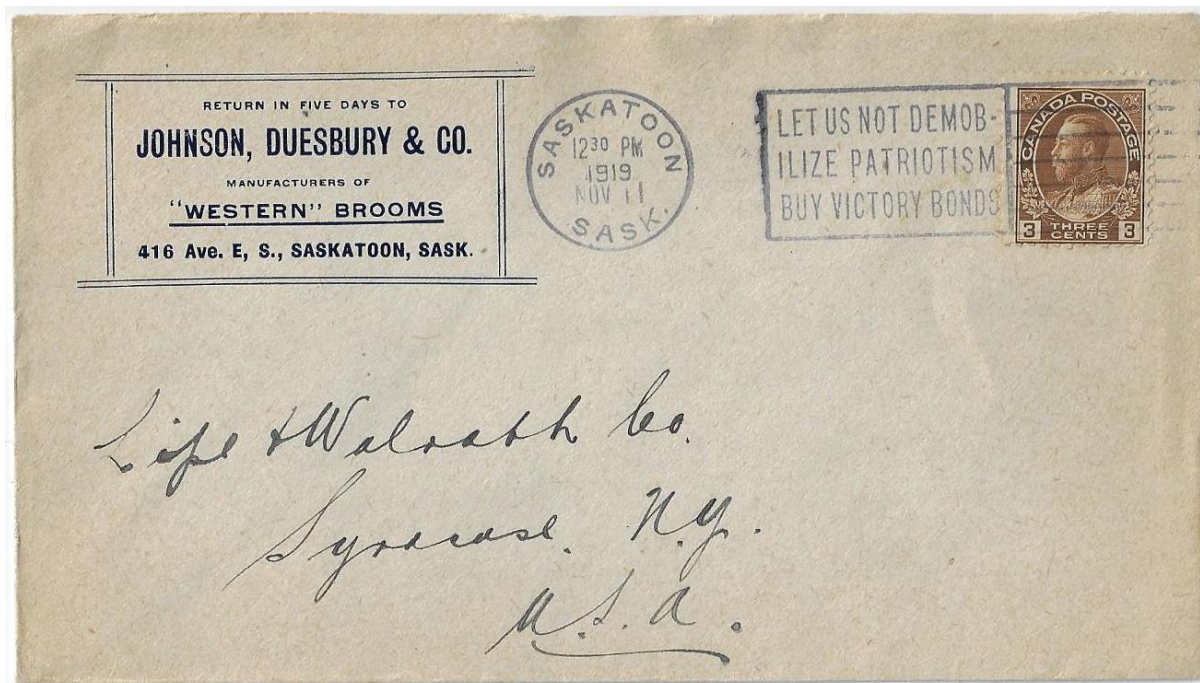 RETURN IN FIVE DAYS TO
JOHNSON, DUESBURY & CO.
MANUFACTURERS OF
"WESTERN" BROOMS
416 Ave. E, S., SASKATOON, SASK.
SASKATOON
12 30 PM
1919
NOV 11
SASK.
LET US NOT DEMOB-
ILIZE PATRIOTISM
BUY VICTORY BONDS
CANADA POSTAGE
3 THREE CENTS 3
Lipe & Walrath Co.
Syracuse. N.Y.
U.S.A.